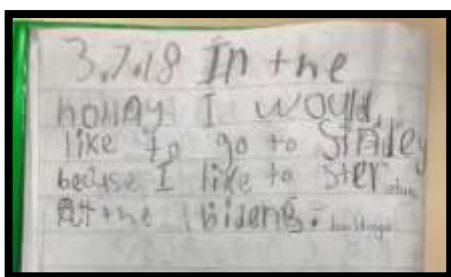 3.7.18 In the
hollAy I would
like to go to Sindey
becuse I like to ster
At the bidens.